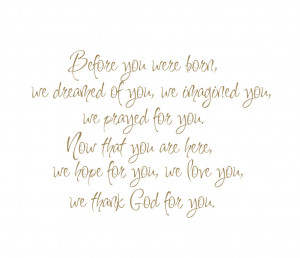 Before you were born,
we dreamed of you, we imagined you,
we prayed for you.
Now that you are here,
we hope for you, we love you,
we thank God for you.